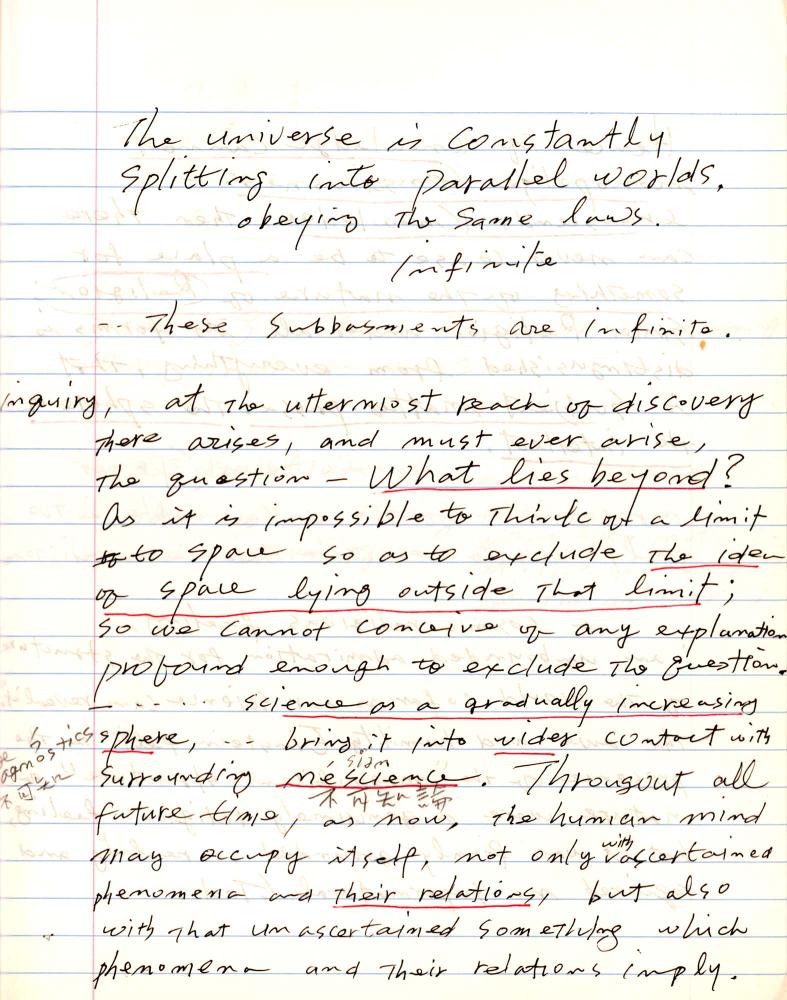 The universe is constantly
splitting into parallel worlds.
obeying the same laws.
infinite
-- These subbasments are infinite.
inquiry, at the uttermost reach of discovery
there arises, and must ever arise,
the question — What lies beyond?
As it is impossible to think of a limit
to space so as to exclude the idea
of space lying outside that limit;
so we cannot conceive of any explanation
profound enough to exclude the question.
— ..... science as a gradually increasing
sphere, -- bring it into wider contact with
agnostics
不可知
surrounding nescience. Througout all
不可知論
future time, as now, the human mind
may occupy itself, not only with ascertained
phenomena and their relations, but also
with that unascertained something which
phenomena and their relations imply.